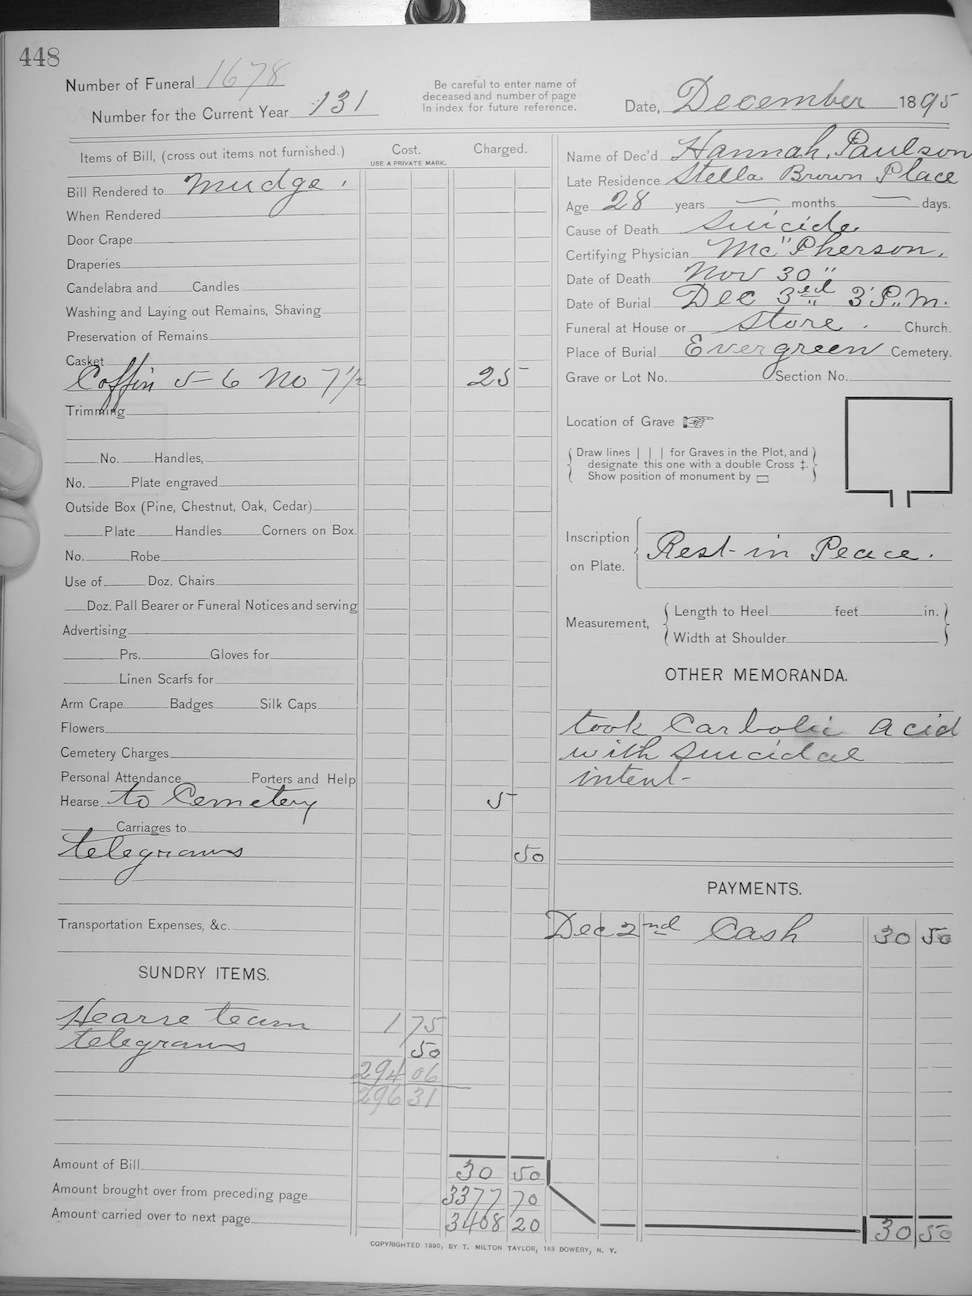 448
Number of Funeral 1678
Number for the Current Year 131
Be careful to enter name of
deceased and number of page
in index for future reference.
Date, December 1895
Items of Bill, (cross out items not furnished.) Cost. Charged.
USE A PRIVATE MARK.
Bill Rendered to Mudge.
When Rendered
Door Crape
Draperies
Candelabra and Candles
Washing and Laying out Remains, Shaving
Preservation of Remains
Casket
Coffin 5-6 No 7½ 25
Trimming
No. Handles,
No. Plate engraved
Outside Box (Pine, Chestnut, Oak, Cedar)
Plate Handles Corners on Box.
No. Robe
Use of Doz. Chairs
Doz. Pall Bearer or Funeral Notices and serving
Advertising
Prs. Gloves for
Linen Scarfs for
Arm Crape Badges Silk Caps
Flowers
Cemetery Charges
Personal Attendance Porters and Help
Hearse to Cemetery 5
Carriages to
telegrams 50
Transportation Expenses, &c.
SUNDRY ITEMS.
Hearse team 1 75
telegrams 50
294 06
296 31
Amount of Bill 30 50
Amount brought over from preceding page 3377 70
Amount carried over to next page 3408 20
Name of Dec'd Hannah. Paulson
Late Residence Stella Brown Place
Age 28 years — months — days.
Cause of Death Suicide.
Certifying Physician Mc"Pherson.
Date of Death Nov 30"
Date of Burial Dec 3rd 3 P.M.
Funeral at House or Store. Church.
Place of Burial Evergreen Cemetery.
Grave or Lot No. Section No.
Location of Grave ☞
Draw lines | | | for Graves in the Plot, and
designate this one with a double Cross ‡.
Show position of monument by ▭
Inscription
on Plate. Rest in Peace.
Measurement, Length to Heel feet in.
Width at Shoulder
OTHER MEMORANDA.
took Carbolic acid
with suicidal
intent-
PAYMENTS.
Dec 2nd Cash 30 50
30 50
COPYRIGHTED 1890, BY T. MILTON TAYLOR, 163 BOWERY, N. Y.